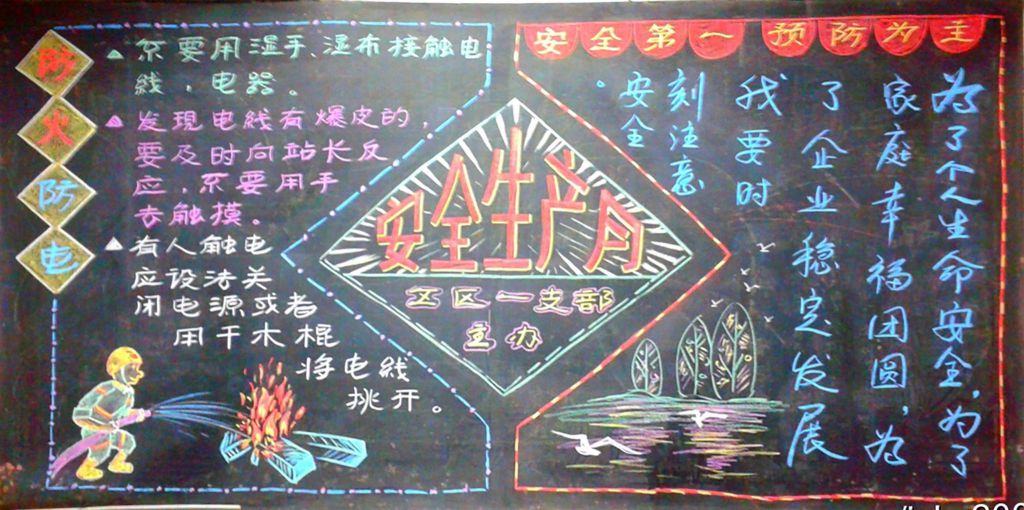 防火防电
▲不要用湿手、湿布接触电
线，电器。
▲发现电线有爆皮的，
要及时向站长反
应，不要用手
去触摸。
▲有人触电
应设法关
闭电源或者
用干木棍
将电线
挑开。
安全生产月
区一支部
主办
安全第一 预防为主
为了个人生命安全，为了
家庭幸福团圆，为
了企业稳定发展
我要时
刻注意
安全
。